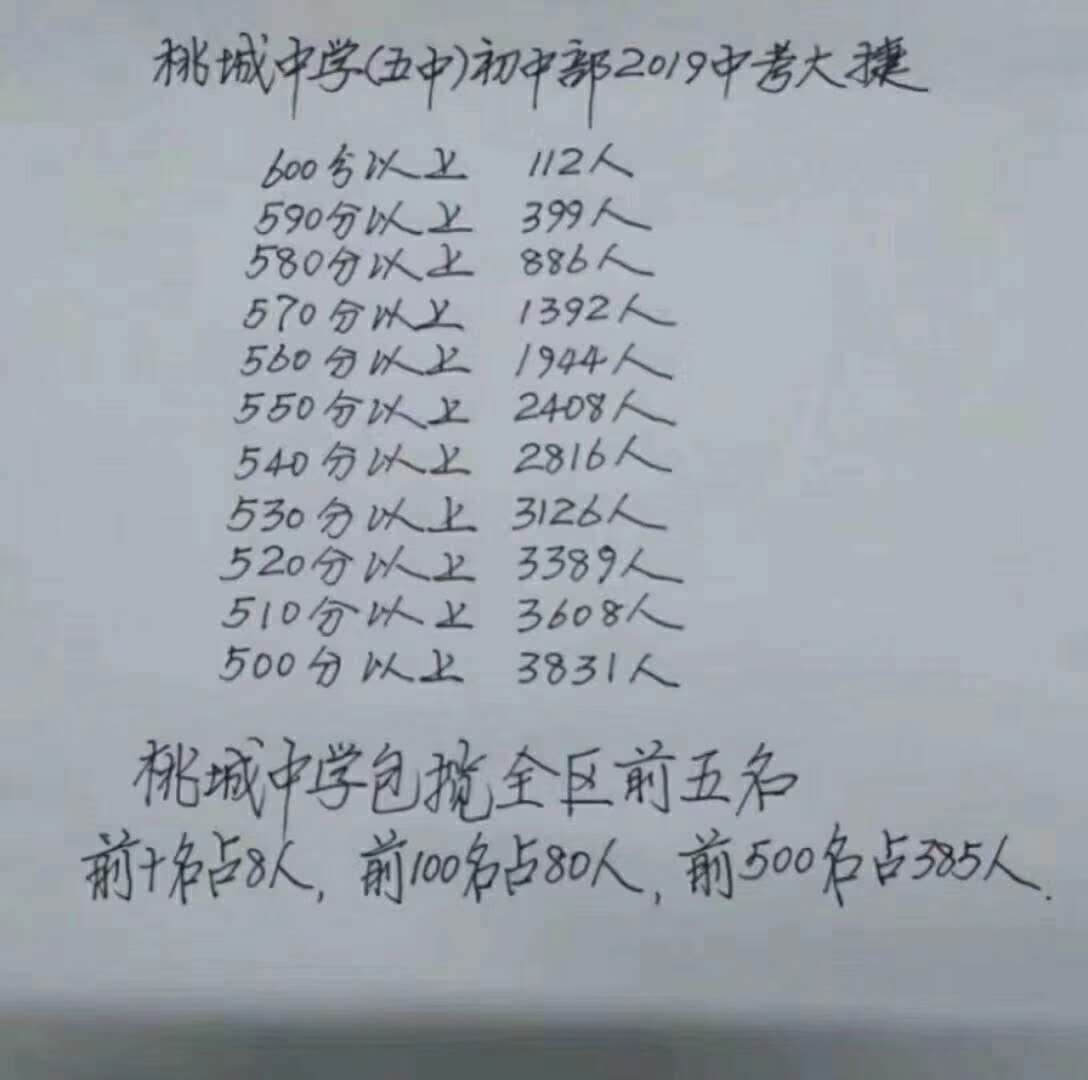 桃城中学(五中)初中部2019中考大捷
600分以上 112人
590分以上 399人
580分以上 886人
570分以上 1392人
560分以上 1944人
550分以上 2408人
540分以上 2816人
530分以上 3126人
520分以上 3389人
510分以上 3608人
500分以上 3831人
桃城中学包揽全区前五名
前十名占8人, 前100名占80人, 前500名占385人.